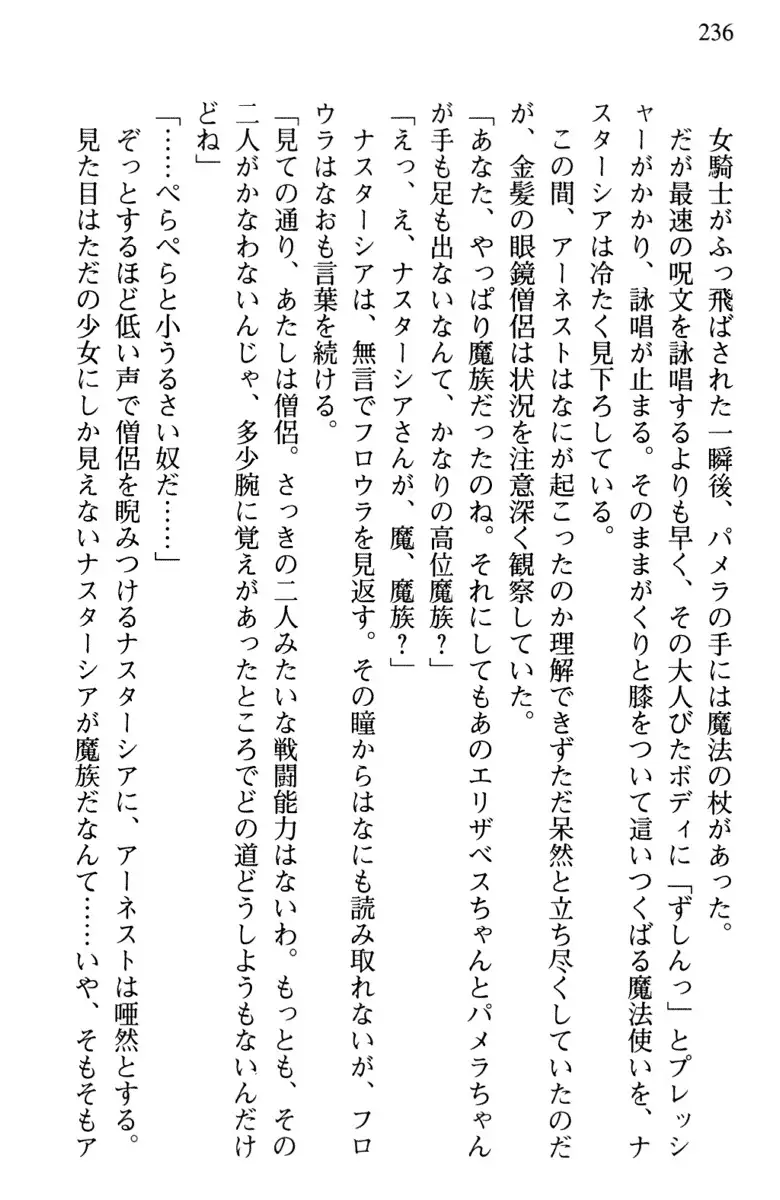 236
女騎士がふっ飛ばされた一瞬後、パメラの手には魔法の杖があった。
だが最速の呪文を詠唱するよりも早く、その大人びたボディに「ずしんっ」とプレッシ
ャーがかかり、詠唱が止まる。そのままがくりと膝をついて這いつくばる魔法使いを、ナ
スターシアは冷たく見下ろしている。
この間、アーネストはなにが起こったのか理解できずただ呆然と立ち尽くしていたのだ
が、金髪の眼鏡僧侶は状況を注意深く観察していた。
「あなた、やっぱり魔族だったのね。それにしてもあのエリザベスちゃんとパメラちゃん
が手も足も出ないなんて、かなりの高位魔族？」
「えっ、え、ナスターシアさんが、魔、魔族？」
ナスターシアは、無言でフロウラを見返す。その瞳からはなにも読み取れないが、フロ
ウラはなおも言葉を続ける。
「見ての通り、あたしは僧侶。さっきの二人みたいな戦闘能力はないわ。もっとも、その
二人がかなわないんじゃ、多少腕に覚えがあったところでどの道どうしようもないんだけ
どね」
「……ぺらぺらと小うるさい奴だ……」
ぞっとするほど低い声で僧侶を睨みつけるナスターシアに、アーネストは唖然とする。
見た目はただの少女にしか見えないナスターシアが魔族だなんて……いや、そもそもア